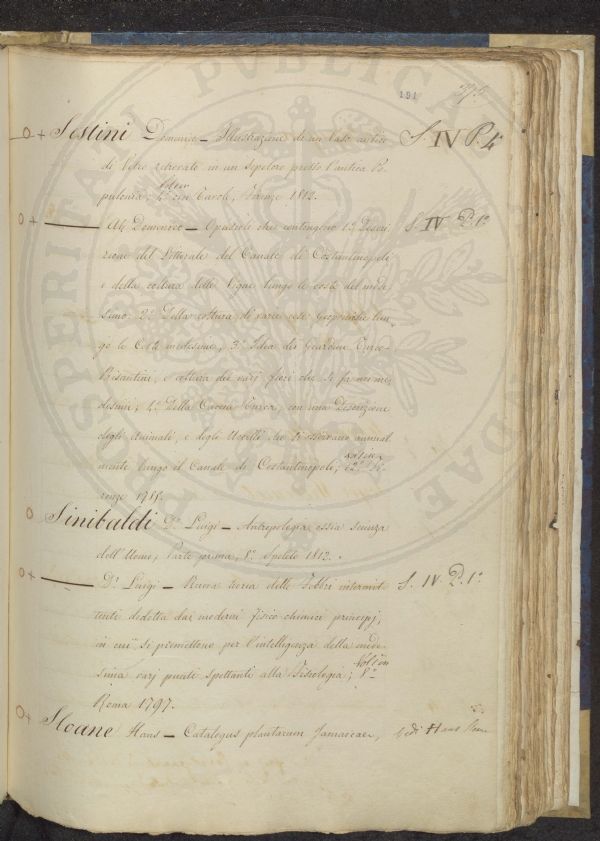 191
Sestini Domenico — Illustrazione di un Vaso antico S. IV P. 4
di Vetro ritrovato in un sepolcro presso l'antica Po
pulonia; 4° con tavole, Firenze 1812.
— Ab. Domenico — Opuscoli che contengono 1° Descri S. IV P. 1°
zione del Littorale del Canale di Costantinopoli
e della coltura delle Vigne lungo le coste del mede
simo: 2° Della coltura di varie cose Geoponiche lun
go le Coste medesime; 3° Idea dei Giardini Turco
Bisantini, e coltura dei varj fiori che si fa ne me
desimi; 4° Della Caccia Turca, con una Descrizione
degli Animali, e degli Uccelli, che si osservano annual
mente lungo il Canale di Costantinopoli; 12° Fi
renze 1785.
Sinibaldi Dr. Luigi — Antropologia ossia scienza
dell'Uomo; Parte prima; 8° Spoleto 1813.
— Dr. Luigi — Nuova teoria delle Febbri intermit S. IV P. 1°
tenti dedotta dai moderni fisico chimici principj,
in cui si premettono per l'intelligenza della mede
sima varj punti spettanti alla Fisiologia; 8°
Roma 1797.
Sloane Hans — Catalogus plantarum Jamaicae, Vedi Hans
PROSPERITATI PVBLICAE